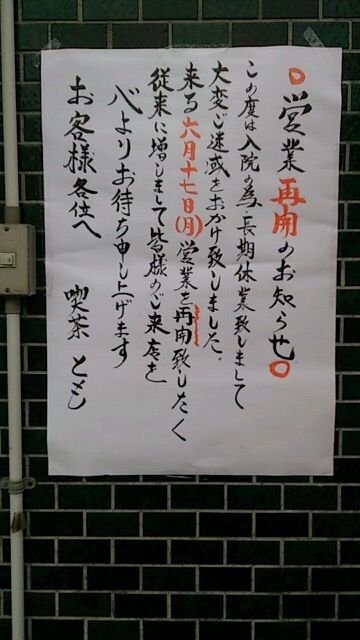 ○営業再開のお知らせ○
この度は入院の為、長期休業致しまして
大変ご迷惑をおかけ致しました。
来る六月十七日(月)営業を再開致したく
従来に増しまして皆様のご来店を
心よりお待ち申し上げます
お客様各位へ 喫茶 とも